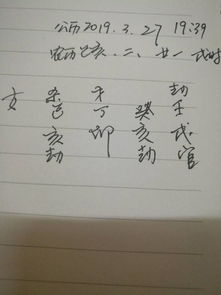 公历2019.3.27 19:39
农历己亥.二.廿一 戌时
杀 才 劫
己 丁 癸 壬
女 亥 卯 亥 戌
劫 劫 官